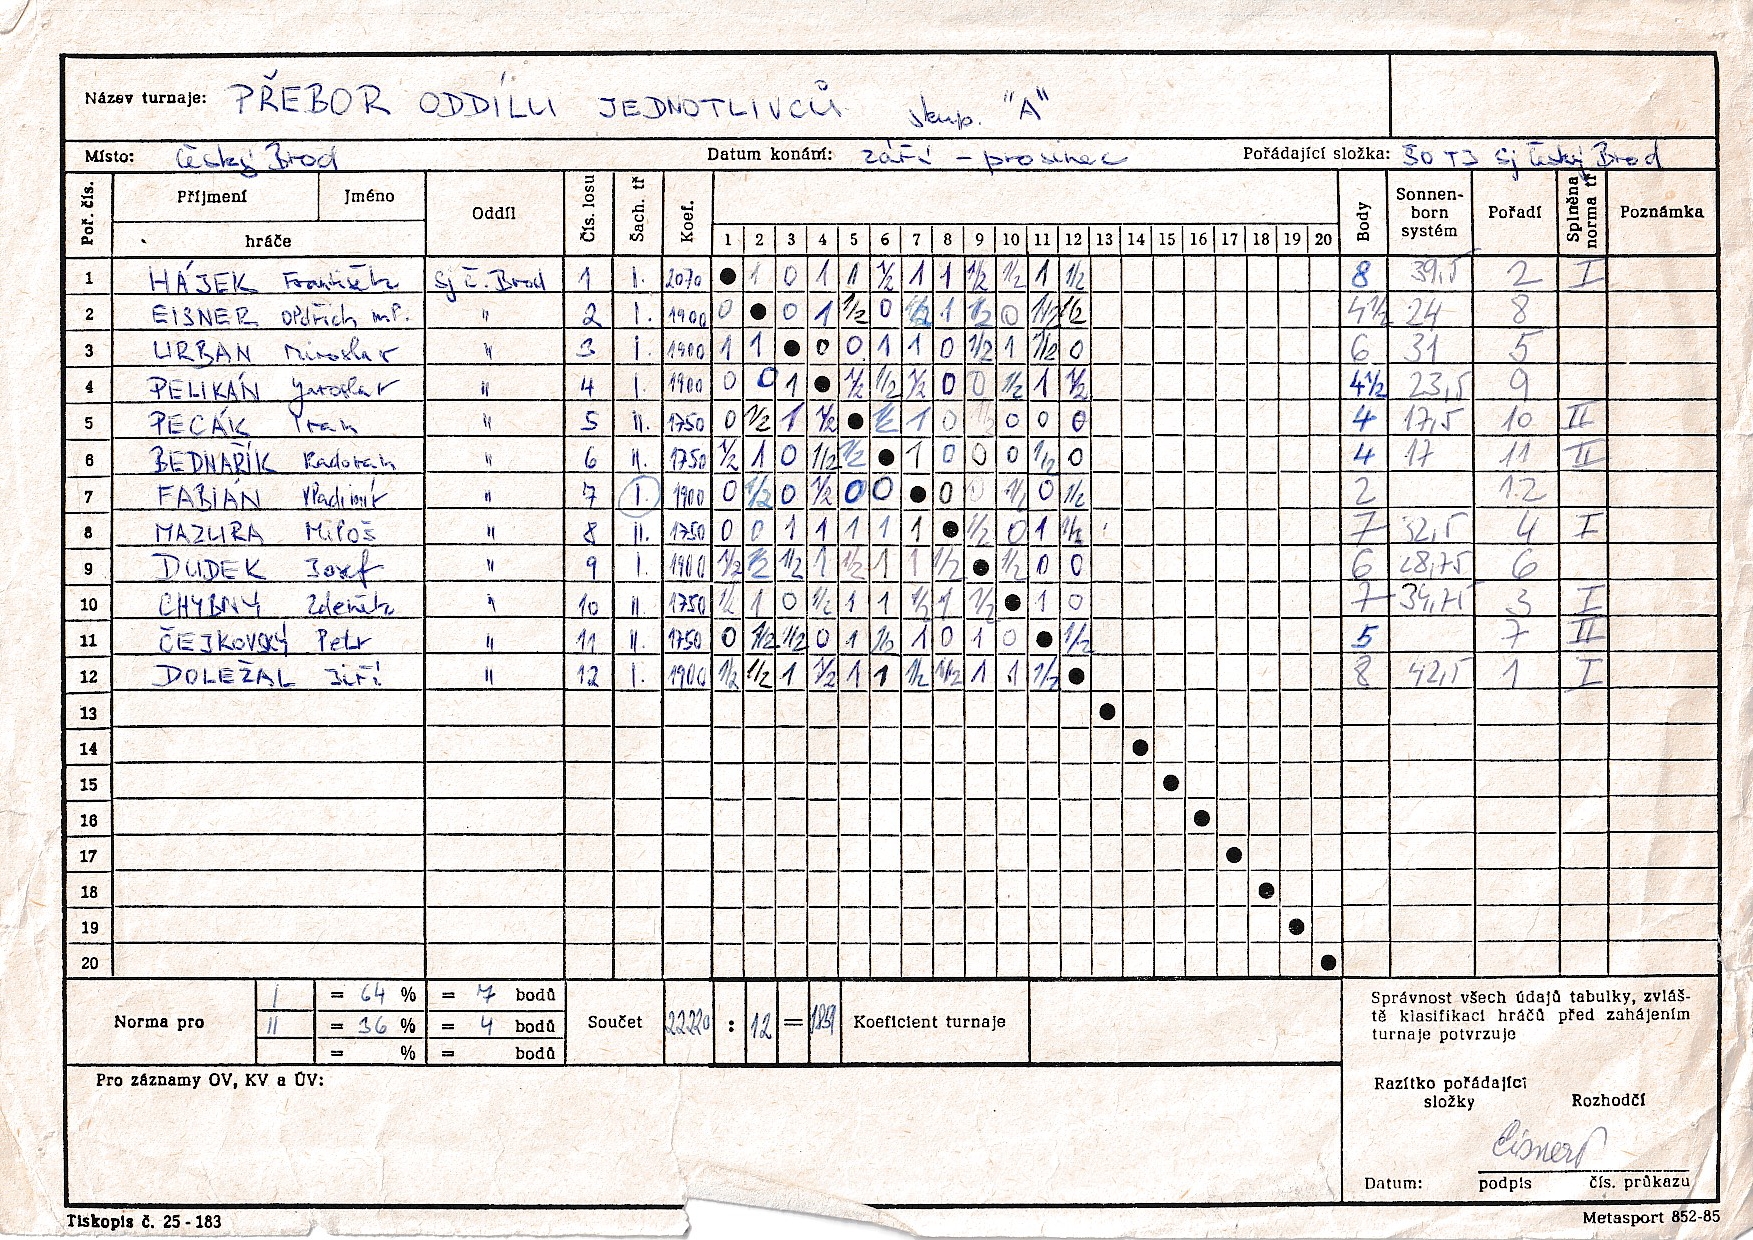 Název turnaje: PŘEBOR ODDÍLU JEDNOTLIVCŮ skup. "A"
Místo: Český Brod Datum konání: září - prosinec Pořádající složka: ŠO TJ Sj Český Brod
Poř. čís. Příjmení Jméno hráče Oddíl Čís. losu Šach. tř Koef. 1 2 3 4 5 6 7 8 9 10 11 12 13 14 15 16 17 18 19 20 Body Sonnen-born systém Pořadí Splněná norma tř Poznámka
1 HÁJEK František Sj Č. Brod 1 I. 2070 ● 1 0 1 1 1/2 1 1 1/2 1/2 1 1/2 8 39,5 2 I
2 EISNER Oldřich ml. " 2 I. 1900 0 ● 0 1 1/2 0 1/2 1 1/2 0 1/2 1/2 4 1/2 24 8
3 URBAN Miroslav " 3 I. 1900 1 1 ● 0 0 1 1 0 1/2 1 1/2 0 6 31 5
4 PELIKÁN Jaroslav " 4 I. 1900 0 0 1 ● 1/2 1/2 1/2 0 0 1/2 1 1/2 4 1/2 23,5 9
5 PECÁK " 5 II. 1750 0 1/2 1 1/2 ● 1/2 1 0 1/2 0 0 0 4 17,5 10 II
6 BEDNAŘÍK Radovan " 6 II. 1750 1/2 1 0 1/2 1/2 ● 1 0 0 0 1/2 0 4 17 11 II
7 FABIÁN Vladimír " 7 I. 1900 0 1/2 0 1/2 0 0 ● 0 0 1/2 0 1/2 2 12
8 MAZURA Miloš " 8 II. 1750 0 0 1 1 1 1 1 ● 1/2 0 1 1/2 7 32,5 4 I
9 DUDEK Josef " 9 I. 1900 1/2 1/2 1/2 1 1/2 1 1 1/2 ● 1/2 0 0 6 28,75 6
10 CHYBNÝ Zdeněk " 10 II. 1750 1/2 1 0 1/2 1 1 1/2 1 1/2 ● 1 0 7 34,75 3 I
11 ČEJKOVSKÝ Petr " 11 II. 1750 0 1/2 1/2 0 1 1/2 1 0 1 0 ● 1/2 5 7 II
12 DOLEŽAL Jiří " 12 I. 1900 1/2 1/2 1 1/2 1 1 1/2 1/2 1 1 1/2 ● 8 42,5 1 I
13
14
15
16
17
18
19
20
Norma pro I = 64 % = 7 bodů
II = 36 % = 4 bodů
= % = bodů
Součet 22220 : 12 = 1851 Koeficient turnaje
Správnost všech údajů tabulky, zvláš-
tě klasifikaci hráčů před zahájením
turnaje potvrzuje
Pro záznamy OV, KV a ÚV:
Razítko pořádající
složky
Rozhodčí
Eisner
Datum: podpis čís. průkazu
Tiskopis č. 25 - 183
Metasport 852-85